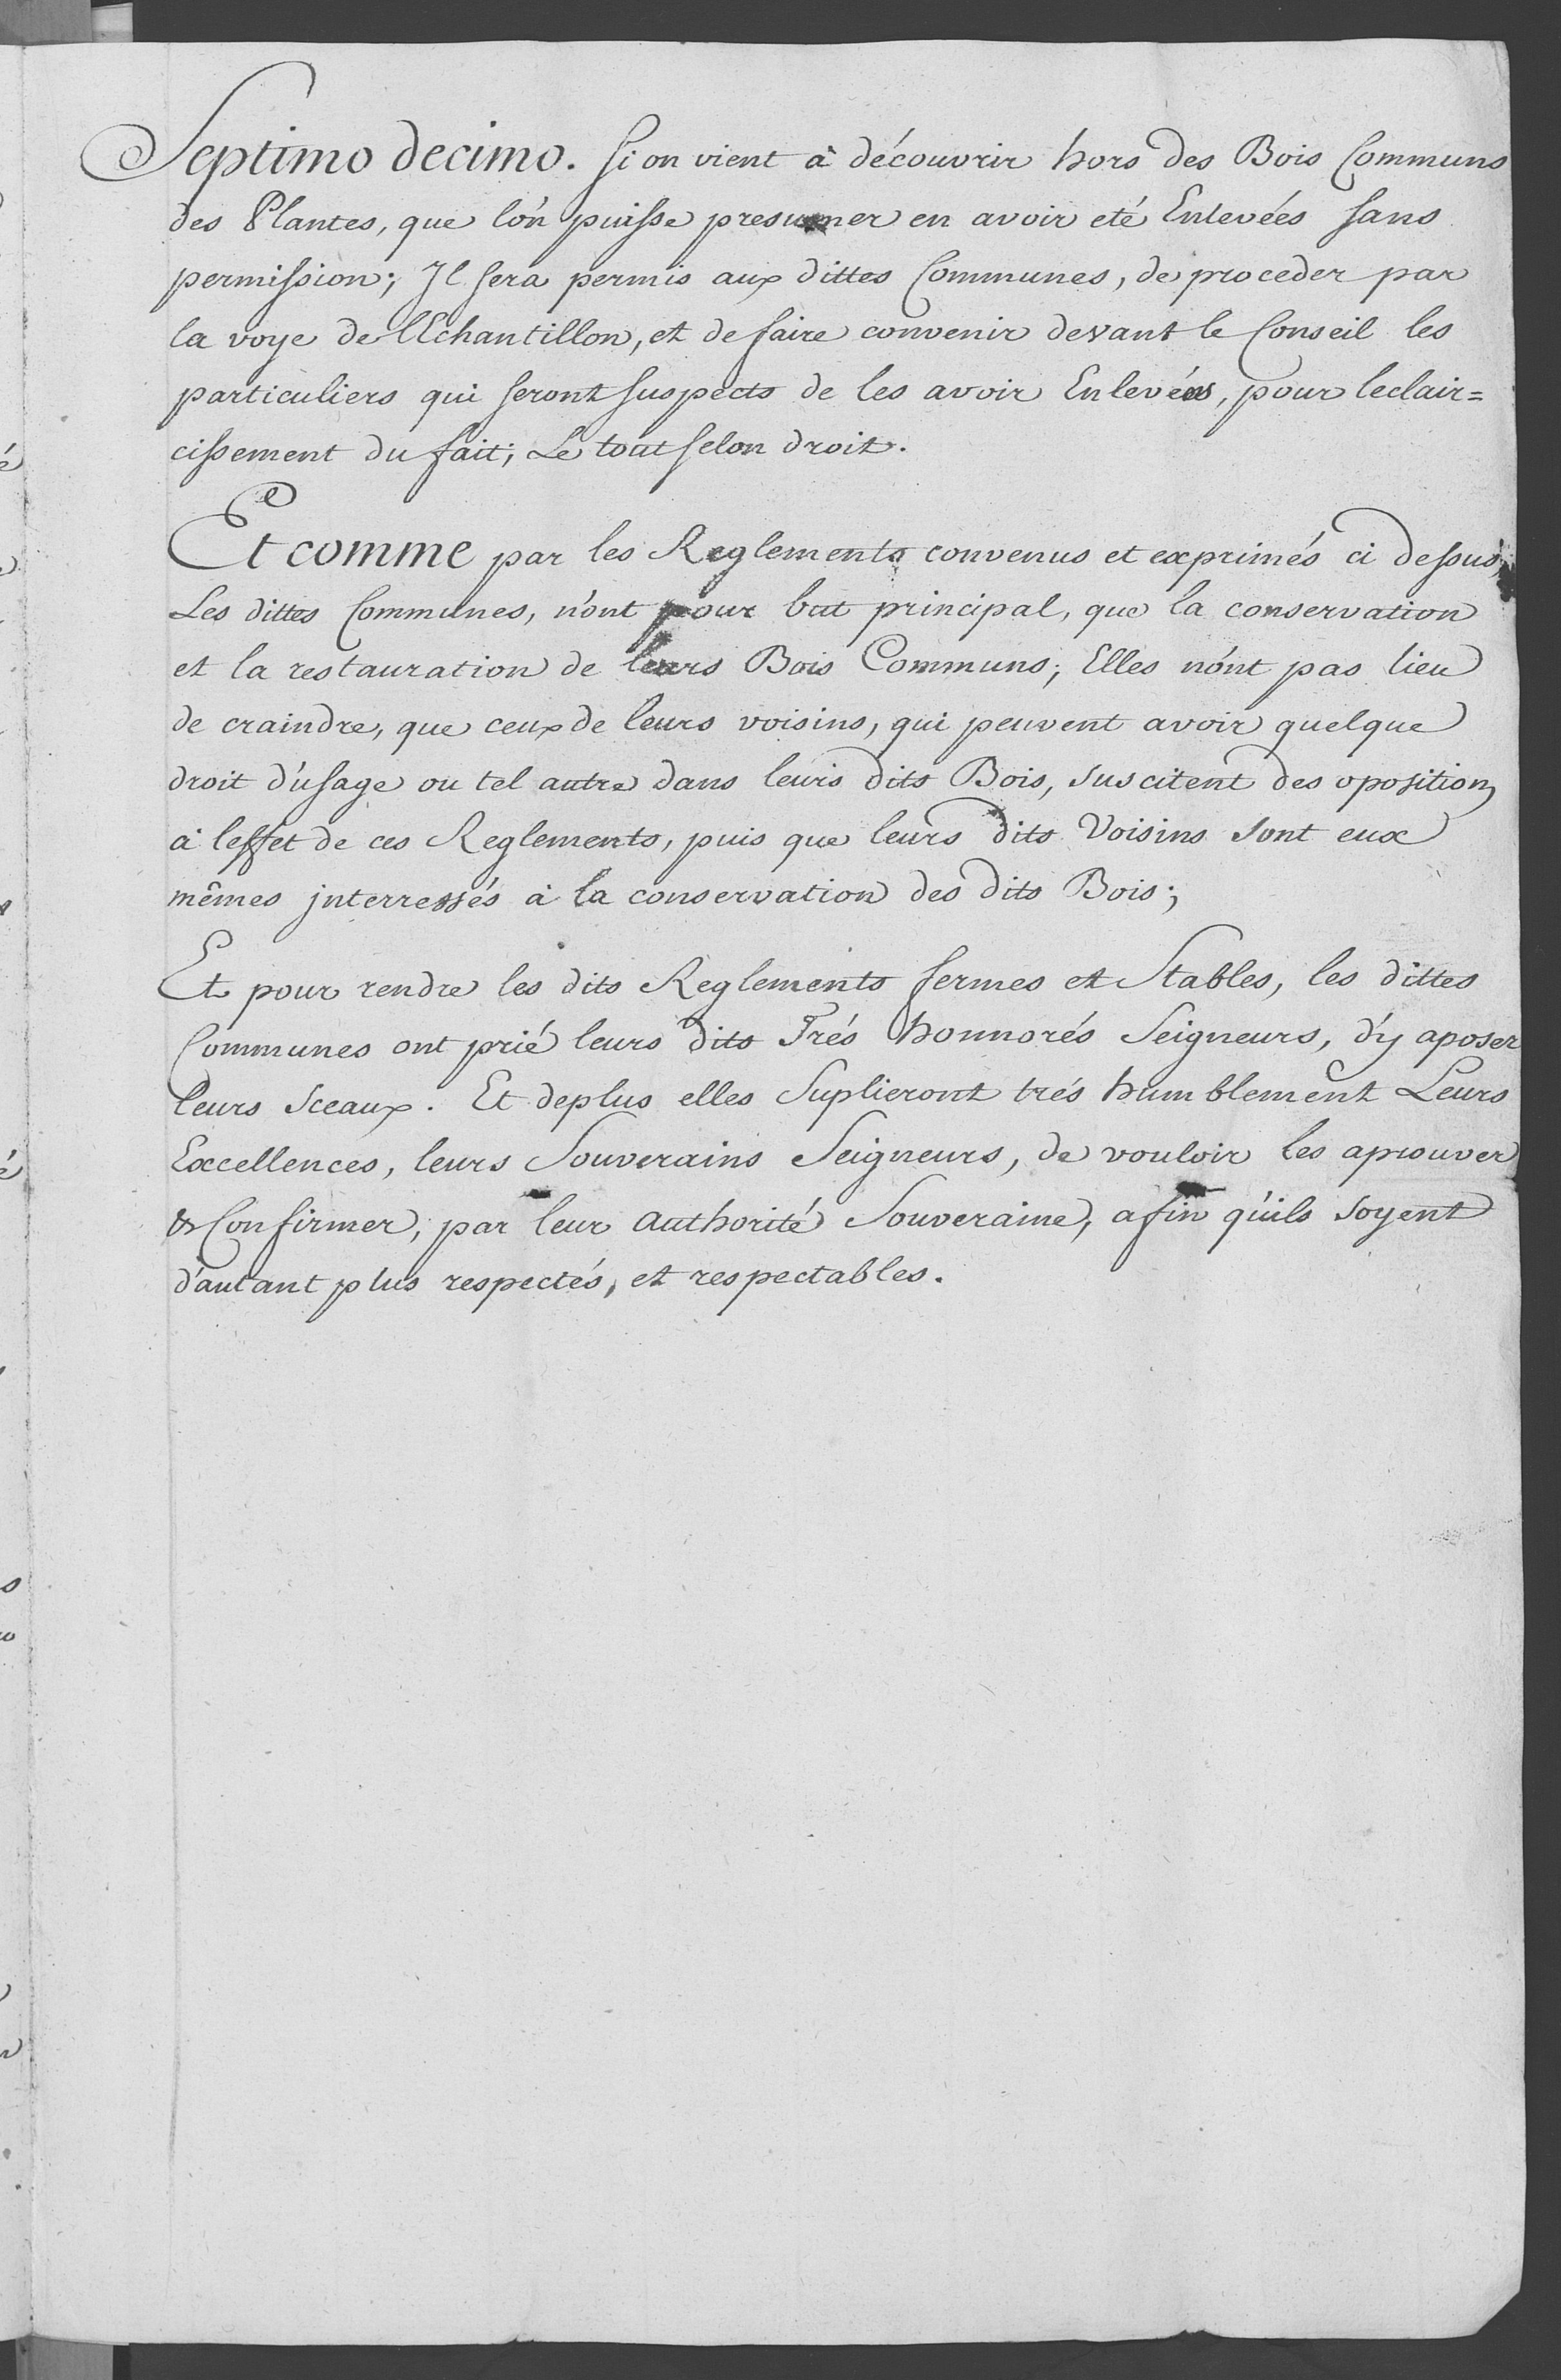 Septimo decimo. Si on vient à découvrir hors des Bois Communs
des Plantes, que lo'n puisse presumer en avoir eté Enlevées sans
permission; Il sera permis aux dittes Communes, de proceder par
la voye de lEchantillon, et de faire convenir devant le Conseil les
particuliers qui seront suspects de les avoir Enlevées, pour leclair=
cissement du fait; Le tout selon droit.
Et comme par les Reglements convenus et exprimés ci dessus,
Les dittes Communes, n'ont pour but principal, que la conservation
et la restauration de leurs Bois Communs; Elles n'ont pas lieu
de craindre, que ceux de leurs voisins, qui peuvent avoir quelque
droit d'usage ou tel autre dans leurs dits Bois, suscitent des oposition
à leffet de ces Reglements, puis que leurs dits Voisins sont eux
mêmes jnterressés à la conservation des dits Bois;
Et pour rendre les dits Reglements fermes et Stables, les dittes
Communes ont prié leurs dits Trés honnorés Seigneurs, d'y aposer
leurs Sceaux. Et deplus elles Suplieront trés humblement Leurs
Excellences, leurs Souverains Seigneurs, de vouloir les aprouver
& Confirmer, par leur Authorité Souveraine, afin qu'ils soyent
d'autant plus respectés, et respectables.